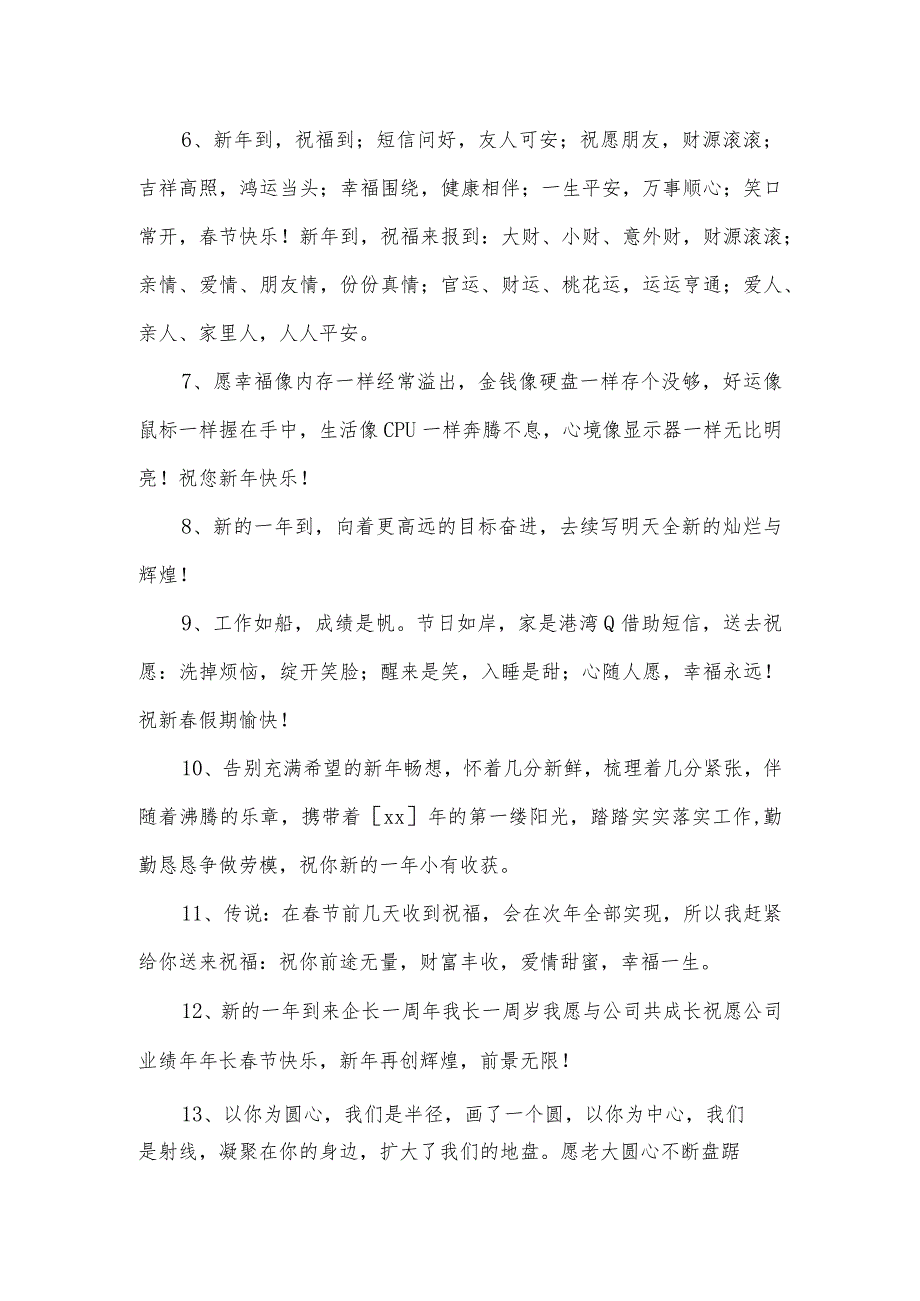 6、新年到，祝福到；短信问好，友人可安；祝愿朋友，财源滚滚；
吉祥高照，鸿运当头；幸福围绕，健康相伴；一生平安，万事顺心；笑口
常开，春节快乐！新年到，祝福来报到：大财、小财、意外财，财源滚滚；
亲情、爱情、朋友情，份份真情；官运、财运、桃花运，运运亨通；爱人、
亲人、家里人，人人平安。
7、愿幸福像内存一样经常溢出，金钱像硬盘一样存个没够，好运像
鼠标一样握在手中，生活像 CPU 一样奔腾不息，心境像显示器一样无比明
亮！祝您新年快乐！
8、新的一年到，向着更高远的目标奋进，去续写明天全新的灿烂与
辉煌！
9、工作如船，成绩是帆。节日如岸，家是港湾 Q 借助短信，送去祝
愿：洗掉烦恼，绽开笑脸；醒来是笑，入睡是甜；心随人愿，幸福永远！
祝新春假期愉快！
10、告别充满希望的新年畅想，怀着几分新鲜，梳理着几分紧张，伴
随着沸腾的乐章，携带着［xx］年的第一缕阳光，踏踏实实落实工作,勤
勤恳恳争做劳模，祝你新的一年小有收获。
11、传说：在春节前几天收到祝福，会在次年全部实现，所以我赶紧
给你送来祝福：祝你前途无量，财富丰收，爱情甜蜜，幸福一生。
12、新的一年到来企长一周年我长一周岁我愿与公司共成长祝愿公司
业绩年年长春节快乐，新年再创辉煌，前景无限！
13、以你为圆心，我们是半径，画了一个圆，以你为中心，我们
是射线，凝聚在你的身边，扩大了我们的地盘。愿老大圆心不断盘踞